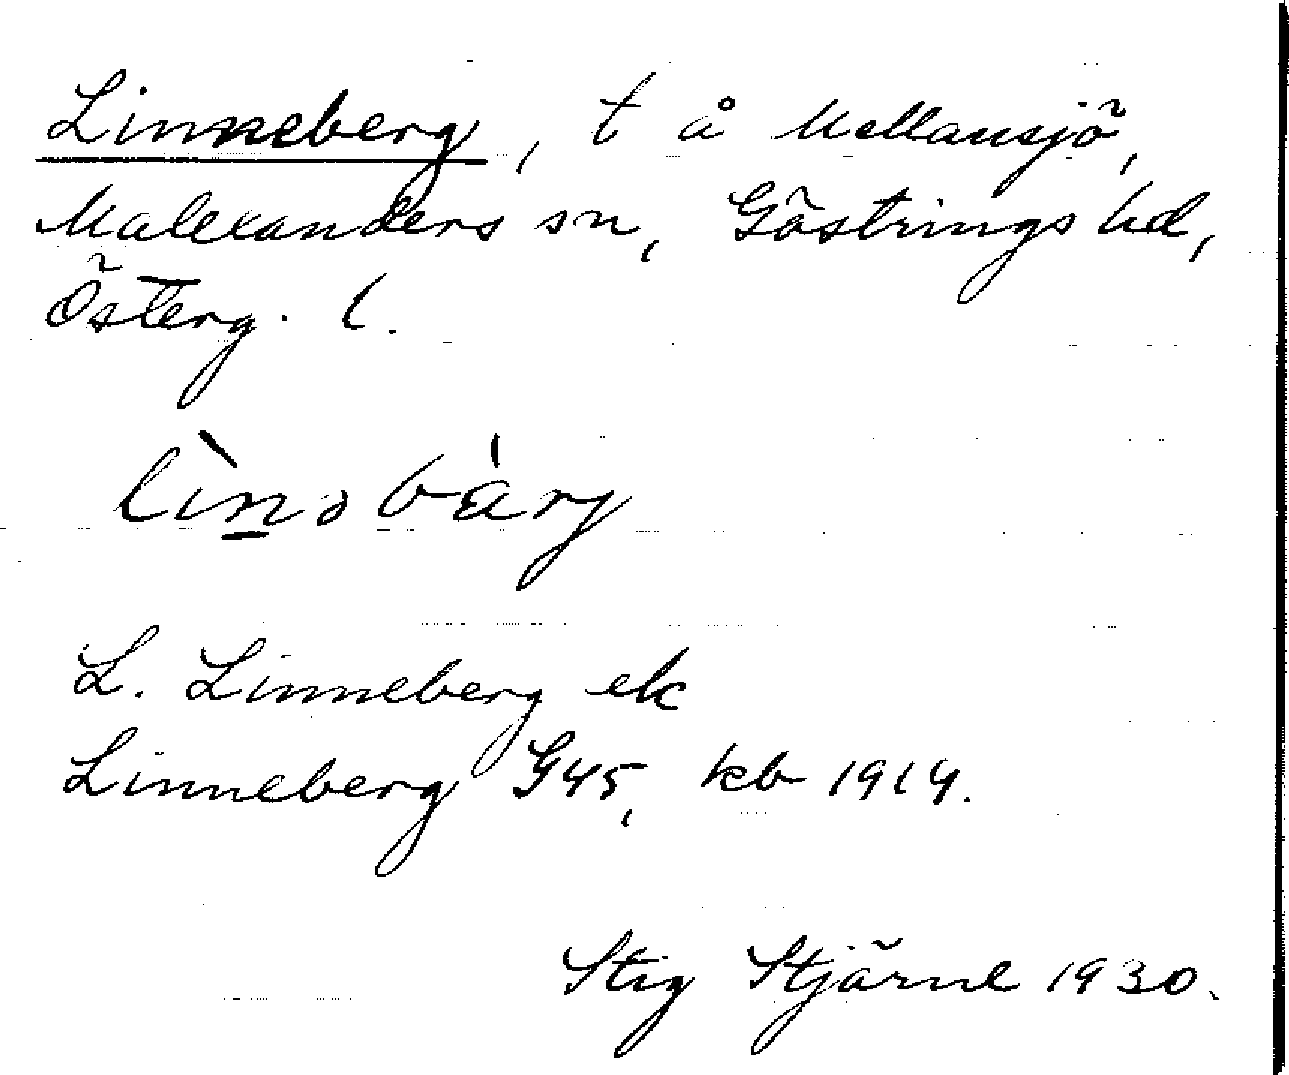 Linneberg, t å Mellansjö,
Malexanders sn, Göstrings hd,
Österg. l.
lìnəbä̀rj
L. Linneberg ek
Linneberg G45, kb 1914.
Stig Stjärne 1930.